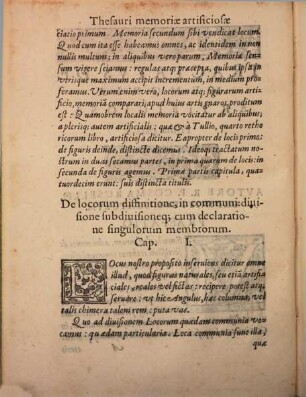 Thesauri memoriæ artificiosæ
ctatio primum. Memoria secundum sibi vendicat locum.
Quod cum ita esse habeamus omnes, ac identidem in non
nullis multum: in aliquibus vero parum, Memoria sen-
sum vigere sciamus: regulae atq; præcepta, quibus ipsa in
vtrisque maximum accipit incrementum, in medium pro-
feramus. Verum enim vero, locorum atq; figurarum artifi-
cio, memoriā comparari, apud huius artis gnaros, proditum
est: Quamobrem localis memoria vocitatur ab aliquibus,
a plerisq; autem artificialis: quæ & à Tullio, quarto rheto
ricorum libro, artificiosa dicitur. Eapropter de locis primo:
de figuris deinde, distincte dicemus. Ideoq; tractatum no-
strum in duas secamus partes, in prima quarum de locis: in
secunda de figuris agemus. Primæ partis capitula, qua-
tuordecim erunt: suis distincta titulis.
De locorum distinctione, in communi: diui-
sione subdiuisioneq; cum declaratio-
ne singulorum membrorum.
Cap. I.
LOcus nostro proposito inseruiens dicitur omne
illud, quod figuras naturales, seu etiā artifi-
ciales, reales vel fictas: recipere potest atq;
seruare: vt hic Angulus, hæc columna, vel
talis chimera talem rem: puta vas.
Quo ad diuisionem Locorum quædam communia vo-
camus: quædam particularia. Loca communia sunt illa,
quæ